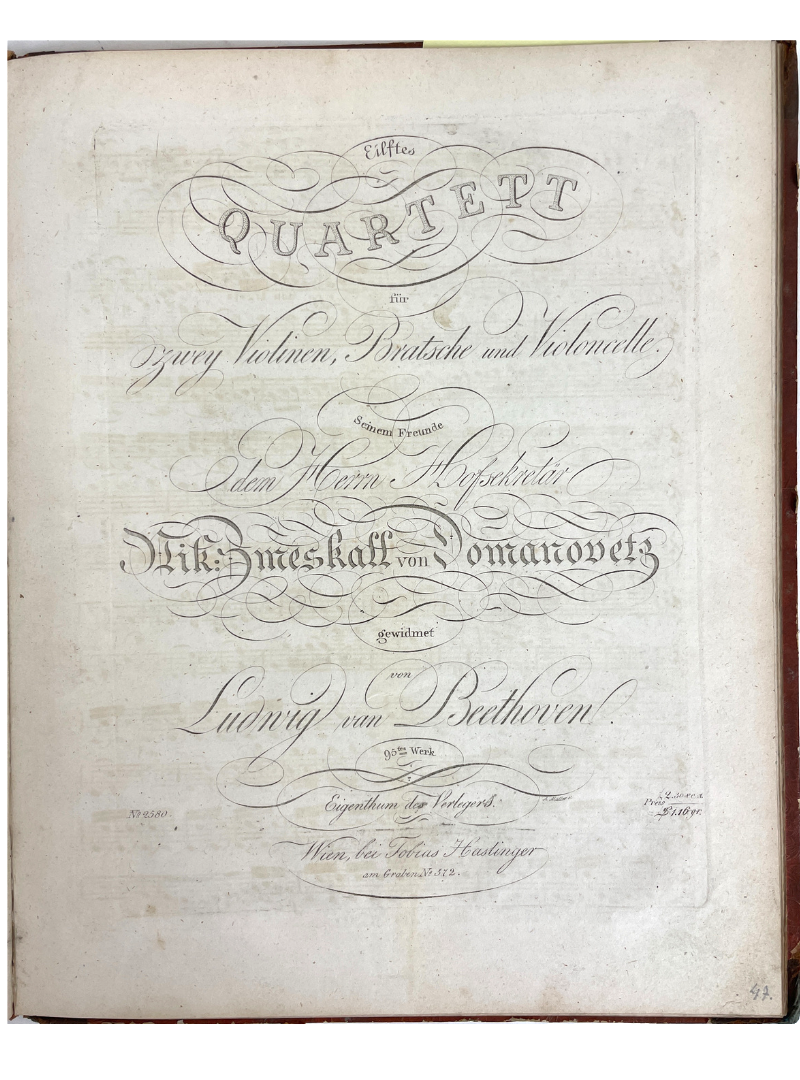 Eilftes
QUARTETT
für
zwey Violinen, Bratsche und Violoncelle.
Seinem Freunde
dem Herrn Hofsekretär
Nik: Zmeskall von Domanovetz
gewidmet
von
Ludwig van Beethoven.
95tes Werk
Eigenthum des Verlegers.
No 2580.
Preis
Wien, bei Tobias Haslinger
am Graben No 572.
47.